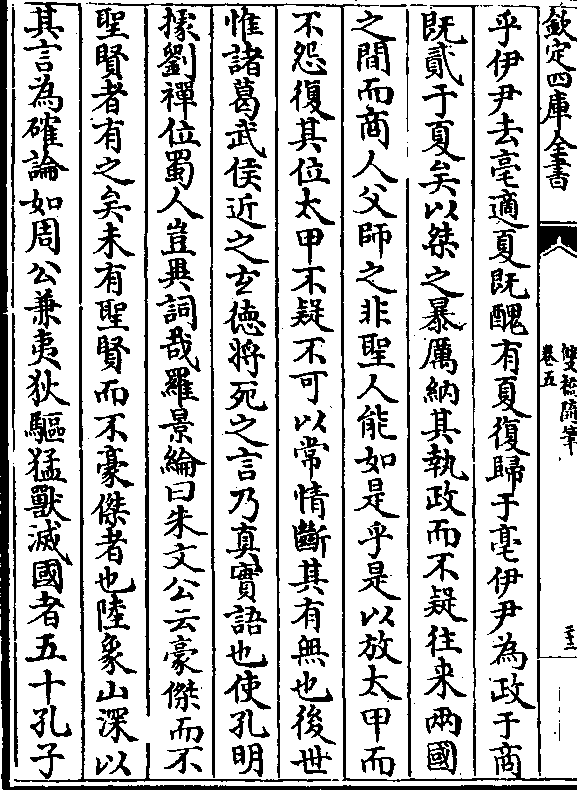 欽定四庫全書
雙橋隨筆
卷五
三三
乎伊尹去亳適夏既醜有夏復歸于亳伊尹為政于商
既貳于夏矣以桀之暴厲納其執政而不疑往来兩國
之間而商人父師之非聖人能如是乎是以放太甲而
不怨復其位太甲不疑不可以常情斷其有無也後世
惟諸葛武侯近之玄德將死之言乃真實語也使孔明
據劉禪位蜀人豈異詞哉羅景綸曰朱文公云豪傑而不
聖賢者有之矣未有聖賢而不豪傑者也陸象山深以
其言為確論如周公兼夷狄驅猛獸滅國者五十孔子